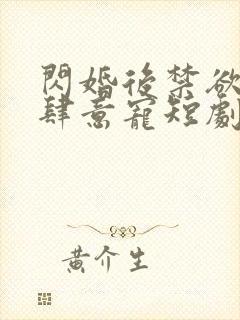 閃婚後禁欲
肆意寵短劇
黃介生